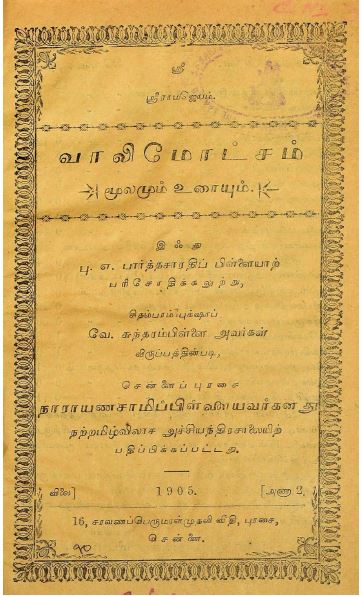 ஸ்ரீ
ஸ்ரீராமஜெயம்.
வாலிமோட்சம்
மூலமும் உரையும்.
இஃது
பு. எ. பார்த்தசாரதிப் பிள்ளையாற்
பரிசோதிக்கலுற்று,
சிதம்பரம் புக்ஷாப்
வே. சுந்தரம்பிள்ளை அவர்கள்
விருப்பத்தின்படி,
சென்னைப்புரசை
நாராயணசாமிப்பிள்ளையவர்களது
நற்றமிழ்விலாச அச்சியந்திரசாலையிற்
பதிப்பிக்கப்பட்டது.
விலை] 1905. [அணா 2,
16, சரவணப்பெருமாள்முதலி வீதி, புரசை,
சென்னை.